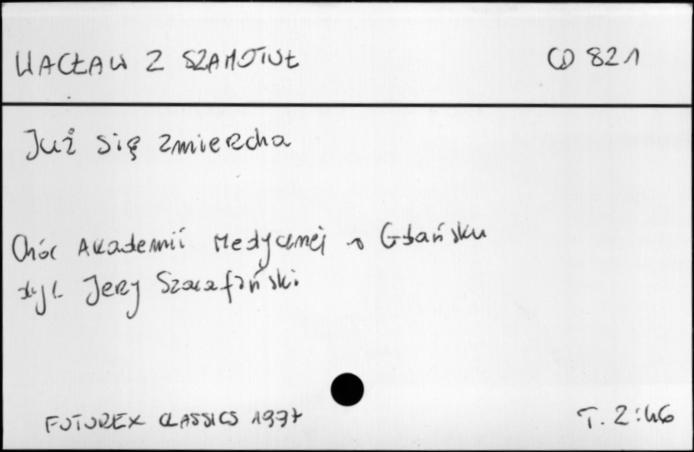 WACŁAW Z SZAMOTUŁ CD 821
Już się zmierzcha
Chór Akademii Medycznej w Gdańsku
dyr. Jerzy Szarafiński
FUTUREX CLASSICS 1997 T. 2:46